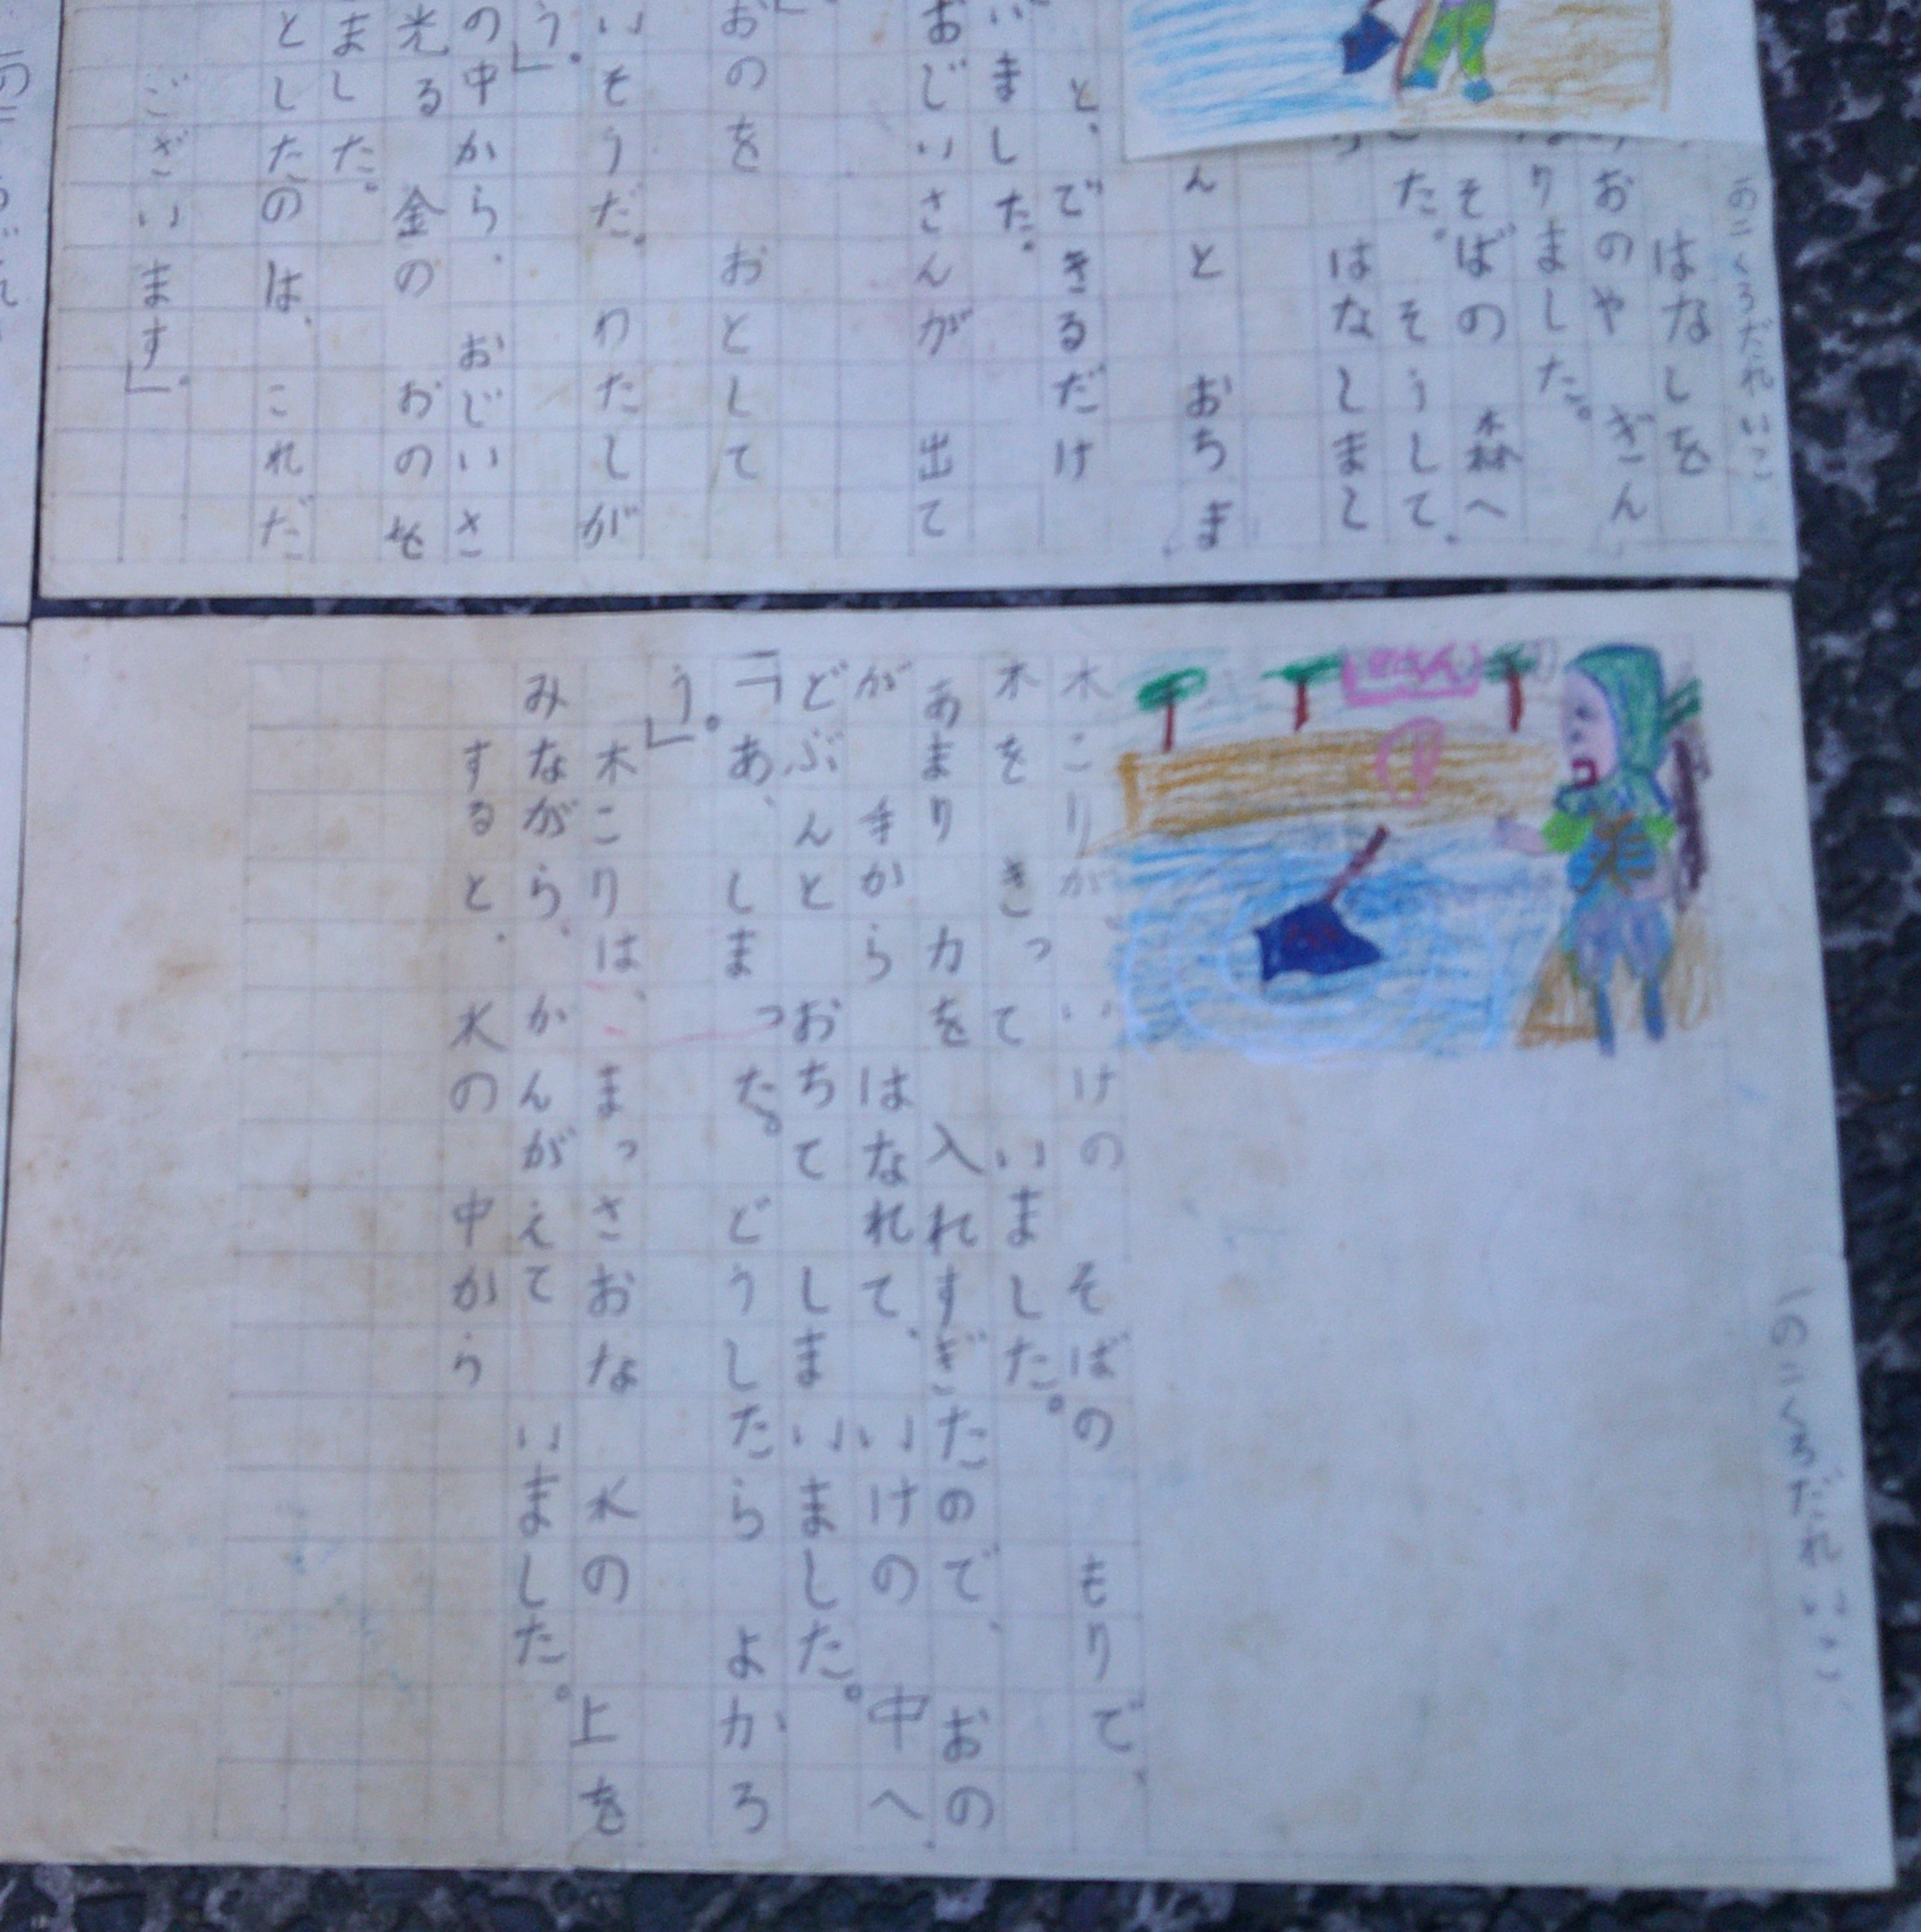 はなしを
おのや ぎん
りました。
そばの 森へ
た。そうして、
はなしまし
んと おちま
と、できるだけ
いました。
おじいさんが 出て
おのを おとして
いそうだ。わたしが
う」。
の中から、おじいさ
光る 金の おのを
ました。
としたのは、これだ
ございます」。
木こりが、いけの そばの もりで、
木を きって いました。
あまり 力を 入れすぎたので、おの
が 手から はなれて、いけの 中へ
どぶんと おちて しまいました。
「あ、しまった。どうしたら よかろ
う。」
木こりは、まっさおな 水の 上を
みながら、かんがえて いました。
すると、水の 中から